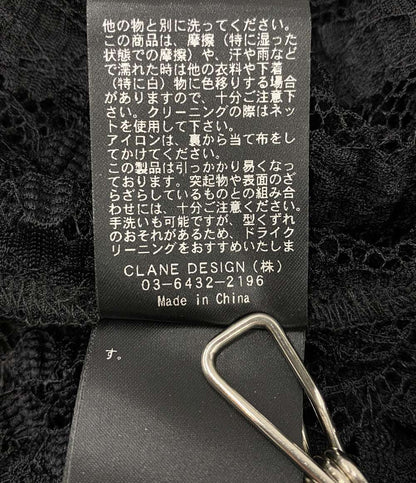 他の物と別に洗ってください。
この商品は、摩擦（特に湿った
状態での摩擦）や、汗や雨など
で濡れた時は他の衣料や下着
（特に白）物に色移りする場合
がありますので、十分ご注意下
さい。クリーニングの際はネッ
トを使用して下さい。
アイロンは、裏から当て布をし
てかけてください。
この製品は引っかかり易くなっ
ております。突起物や表面のざ
らざらしているものとの組み合
わせには、十分ご注意ください。
手洗いも可能ですが、型くずれ
のおそれがあるため、ドライク
リーニングをおすすめいたしま
CLANE DESIGN（株）
03-6432-2196
Made in China
す。